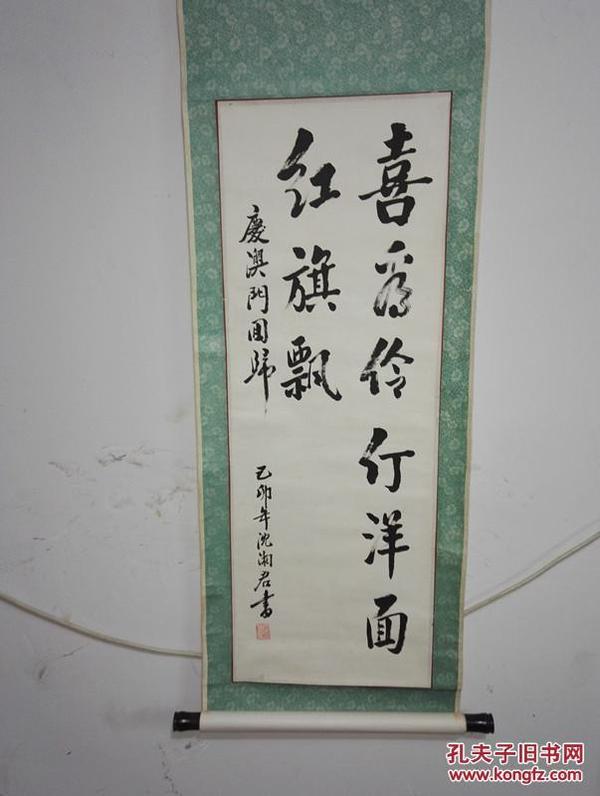 喜看伶仃洋面
红旗飘
慶澳門回歸
己卯年沈湘君書
孔夫子旧书网
www.kongfz.com